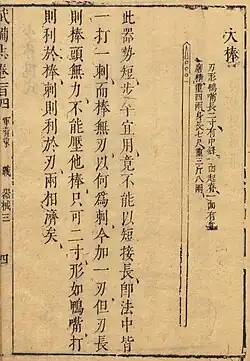 大棒
刃形鴨嘴長二寸有中鋒一面起脊一面有
精重四兩身長七尺重三斤八兩
此器勢短步
宜用竟不能以短接長師法中皆
一打一刺而棒無刃以何為刺今加一刃但刃長
則棒頭無力不能壓他棒只可二寸形如鴨嘴打
則利於棒刺則利於刃兩相濟矣
武備志卷百四 軍資乘 戰 器械三 四